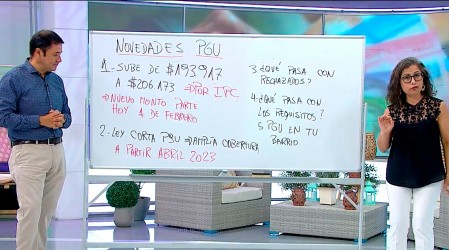 NOVEDADES PGU
1.- SUBE DE $193.917
A $206.173 ⇒ POR IPC
⇒ NUEVO MONTO PARTE
HOY 1 DE FEBRERO
2.- LEY CORTA PGU ⇒ AMPLÍA COBERTURA
A PARTIR ABRIL 2023
3. ¿QUÉ PASA CON
RECHAZADOS?
4.- ¿QUÉ PASA CON
LOS REQUISITOS?
5 PGU EN TU
BARRIO